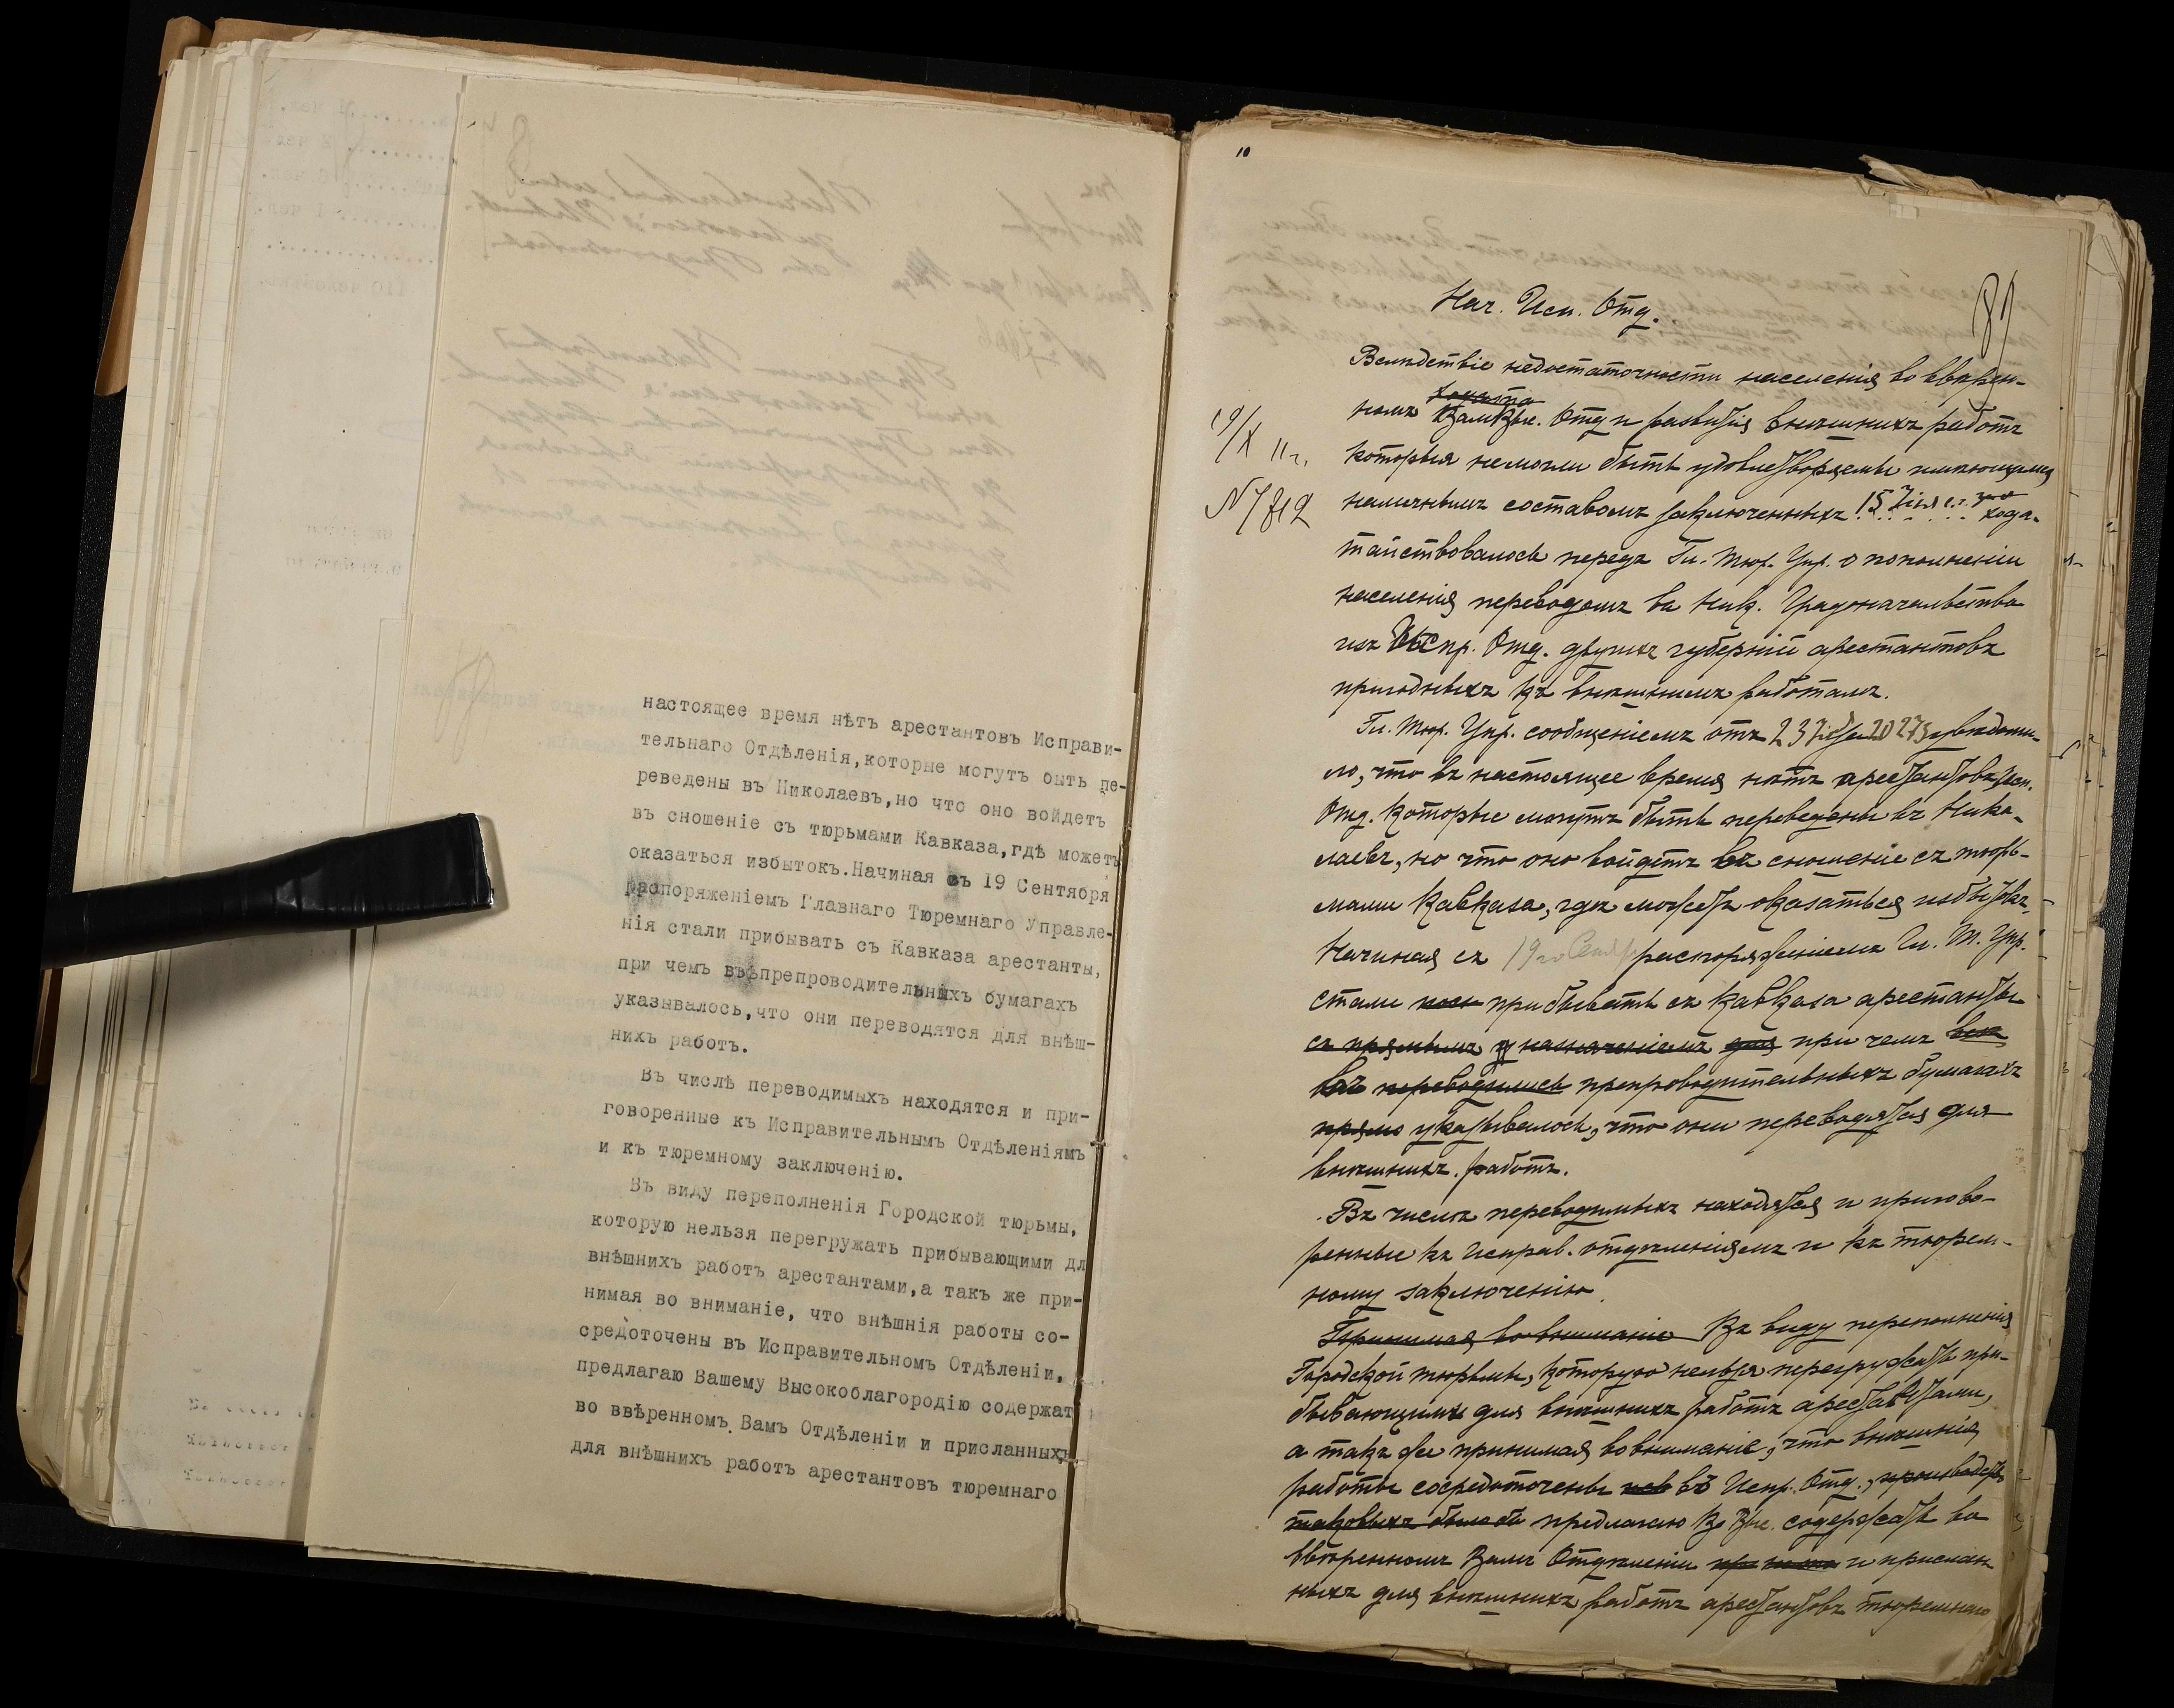 настоящее время нѣтъ арестантовъ Исправи-
тельнаго Отдѣленія,которые могутъ быть пе-
реведены въ Николаевъ,но что оно войдетъ
въ сношеніе съ тюрьмами Кавказа,гдѣ можетъ
оказаться избытокъ.Начиная съ 19 Сентября
распоряженіемъ Главнаго Тюремнаго Управле-
нія стали прибывать съ Кавказа арестанты,
при чемъ въ препроводительныхъ бумагахъ
указывалось,что они переводятся для внѣш-
нихъ работъ.
Въ числѣ переводимыхъ находятся и при-
говоренные къ Исправительнымъ Отдѣленіямъ
и къ тюремному заключенію.
Въ виду переполненія Городской тюрьмы,
которую нельзя перегружать прибывающими дл
внѣшнихъ работъ арестантами,а такъ же при-
нимая во вниманіе, что внѣшнія работы со-
средоточены въ Исправительномъ Отдѣленіи,
предлагаю Вашему Высокоблагородію содержат
во ввѣренномъ Вамъ Отдѣленіи и присланныхъ
для внѣшнихъ работъ арестантовъ тюремнаго
10
89
Нач. Исп. Отд.
19/X 11 г.
№ 7812
Вслѣдствіе недостаточности населенія во ввѣрен-
номъ Вам Отд и развитія внѣшнихъ работъ
которыя не могли быть удовлетворяемы имѣющимся
наличнымъ составомъ заключенныхъ 15 хода-
тайствовалось передъ Гл. Тюр. Упр. о пополненіи
населенія переводомъ въ Ник. Градоначальство
изъ Испр. Отд. другихъ губерній арестантовъ
пригодныхъ къ внѣшнимъ работамъ.
Гл. Тюр. Упр. сообщеніемъ отъ 23 20273 увѣдоми-
ло, что въ настоящее время нѣтъ арестантовъ Исп.
Отд. которые могутъ быть переведены въ Нико-
лаевъ, но что оно войдетъ въ сношеніе съ тюрь-
мами Кавказа, гдѣ можетъ оказаться избытокъ.
Начиная съ 19го Сентяб распоряженіемъ Гл. Т. Упр.
стали прибывать съ Кавказа арестанты
съ прямымъ назначеніемъ для при чемъ
переводились препроводительныхъ бумагахъ
прямо указывалось, что они переводятся для
внѣшнихъ работъ.
Въ числѣ переводимыхъ находятся и пригово-
ренные къ Исправ. отдѣленіямъ и къ тюрем-
ному заключенію
Принимая во вниманіе Въ виду переполненія
Городской тюрьмы, которую нельзя перегружать при-
бывающими для внѣшнихъ работъ арестантами,
а такъ же принимая во вниманіе, что внѣшнія
работы сосредоточены въ Испр. Отд., производство
таковыхъ было бы предлагаю содержать во
ввѣренномъ Вамъ Отдѣленіи и прислан-
ныхъ для внѣшнихъ работъ арестантовъ тюремнаго